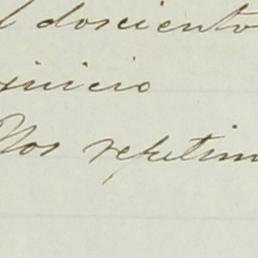 l dosciento
inicio
Nos repetim